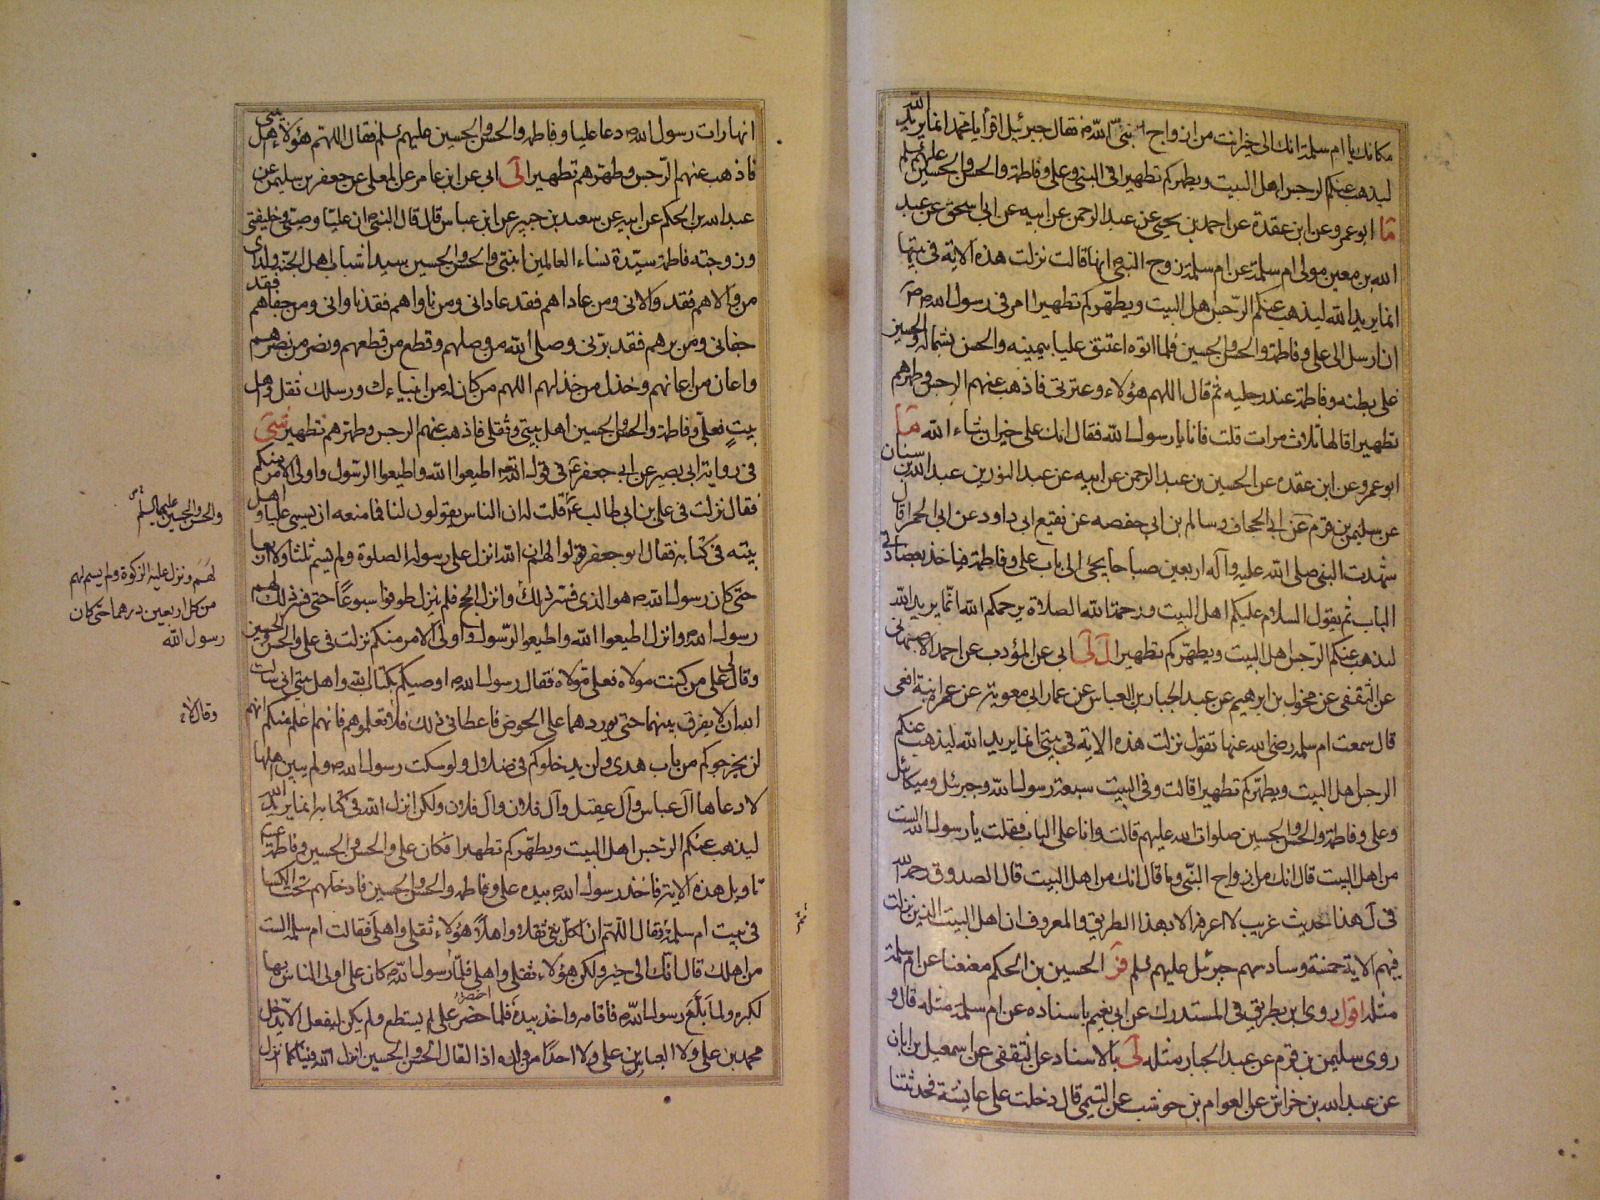 مكانك يا ام سلمة انك الى خير انت من ازواج نبى الله فقال جبرئيل اقرأ يا محمد انما يريد الله
ليذهب عنكم الرجس اهل البيت ويطهركم تطهيرا فى النبى وعلى وفاطمة والحسن والحسين عليهم السلم
ما ابو عمرو عن ابن عقدة عن احمد بن يحيى عن عبد الرحمن عن ابيه عن ابى اسحق عن عبد
الله بن معين مولى ام سلمة عن ام سلمة زوج النبى انها قالت نزلت هذه الاية فى بيتها
انما يريد الله ليذهب عنكم الرجس اهل البيت ويطهركم تطهيرا امرنى رسول الله
ان ارسل الى على وفاطمة والحسن والحسين فلما اتوه اعتنق عليا بيمينه والحسن بشماله والحسين
على بطنه وفاطمة عند رجليه ثم قال اللهم هؤلاء وعترتى فاذهب عنهم الرجس وطهرهم
تطهيرا قالها ثلاث مرات قلت فانا يا رسول الله فقال انك على خير ان شاء الله ما
ابو عمرو عن ابن عقده عن الحسين بن عبد الرحمن عن ابيه عن عبد النور بن عبد الله بن سنان
عن سليمن بن قرم عن ابى الجحاف وسالم بن ابى حفصه عن نفيع ابى داود عن ابى الحمرا قال
شهدت النبى صلى الله عليه وآله اربعين صباحا يجئ الى باب على وفاطمة فياخذ بعضادتى
الباب ثم يقول السلام عليكم اهل البيت ورحمة الله الصلاة يرحمكم الله انما يريد الله
ليذهب عنكم الرجس اهل البيت ويطهركم تطهيرا ل لى ابى عن المؤدب عن احمد الاصبهانى
عن الثقفى عن مخول بن ابرهيم عن عبد الجبار بن العباس عن عمار ابى معوية عن عمرة ابنة افعى
قال سمعت ام سلمة رضى الله عنها تقول نزلت هذه الاية فى بيتى انما يريد الله ليذهب عنكم
الرجس اهل البيت ويطهركم تطهيرا قالت وفى البيت سبعة رسول الله وجبرئل وميكائل
وعلى وفاطمة والحسن والحسين صلوات الله عليهم قالت وانا على الباب فقلت يا رسول الله الست
من اهل البيت قال انك من ازواج النبى وما قال انك من اهل البيت قال الصدوق رحمه الله
فى ل هذا حديث غريب لا اعرفه الا بهذا الطريق والمعروف ان اهل البيت الذين نزلت
فيهم الاية خمسة وسادسهم جبرئل عليهم السلم فر الحسين بن الحكم معنعنا عن ام سلمة
مثله اقول روى ابن بطريق فى المستدرك عن ابى نعيم باسناده عن ام سلمة مثله قال و
روى سليمن بن قرم عن عبد الجبار مثله لى بالاسناد عن الثقفى عن اسمعيل بن ابان
عن عبد الله بن خراش عن العوام بن حوشب عن التيمى قال دخلت على عايشة فحدثتنا
انها رات رسول الله دعا عليا وفاطمه والحسن والحسين عليهم السلم فقال اللهم هؤلاء اهل بيتى
فاذهب عنهم الرجس وطهرهم تطهيرا لى ابى عن ابن عامر عن المعلى عن جعفر بن سليمن عن
عبد الله بن الحكم عن ابيه عن سعيد بن جبير عن ابن عباس قال قال النبى ان عليا وصيى وخليفتى
وزوجته فاطمة سيدة نساء العالمين ابنتى والحسن والحسين سيدا شباب اهل الجنة ولداى
من والاهم فقد والانى ومن عاداهم فقد عادانى ومن ناواهم فقد ناوانى ومن جفاهم فقد
جفانى ومن برهم فقد برنى وصل الله من وصلهم وقطع من قطعهم ونصر من نصرهم
واعان من اعانهم وخذل من خذلهم اللهم من كان له من انبياءك ورسلك ثقل واهل
بيت فعلى وفاطمة والحسن والحسين اهل بيتى وثقلى فاذهب عنهم الرجس وطهرهم تطهيرا شى
فى رواية ابى بصير عن ابى جعفر فى قول الله اطيعوا الله واطيعوا الرسول واولى الامر منكم
فقال نزلت فى على بن ابى طالب قلت له ان الناس يقولون لنا فما منعه ان يسمى عليا واهل
بيته فى كتابه فقال ابو جعفر قولوا لهم ان الله انزل على رسوله الصلوة ولم يسم ثلثا ولا اربعا
حتى كان رسول الله هو الذى فسر ذلك وانزل الحج فلم ينزل طوفوا سبوعا حتى فسر ذلك لهم
رسول الله وانزل اطيعوا الله واطيعوا الرسول واولى الامر منكم نزلت فى على والحسن والحسين
وقال فى على من كنت مولاه فعلى مولاه فقال رسول الله اوصيكم بكتاب الله واهل بيتى انى سالت
الله ان لا يفرق بينهما حتى يوردهما على الحوض فاعطانى ذلك فلا تعلموهم فانهم اعلم منكم انهم
لن يخرجوكم من باب هدى ولن يدخلوكم فى ضلال ولو سكت رسول الله ولم يبين اهلها
لادعاها آل عباس وآل عقيل وآل فلان وآل فلان ولكن انزل الله فى كتابه انما يريد الله
ليذهب عنكم الرجس اهل البيت ويطهركم تطهيرا فكان على والحسن والحسين وفاطمة
تاويل هذه الاية فاخذ رسول الله بيد على وفاطمه والحسن والحسين فادخلهم تحت الكسا
فى بيت ام سلمة فقال اللهم ان لكل نبى ثقلا واهلا فهؤلاء ثقلى واهلى فقالت ام سلمة الست
من اهلك قال انك الى خير ولكن هؤلاء ثقلى واهلى فلما رسول الله كان على اولى الناس بها
لكبره ولما بلغ رسول الله فاقامه واخذ بيده فلما حضر على لم يستطع ولم يكن ليفعل ان يدخل
محمد بن على ولا العباس بن على ولا احدا من ولده اذا لقال الحسن والحسين انزل الله فينا كما نزل
والحسن والحسين عليهما السلم
لهم ونزل عليه الزكوة ولم يسم لهم
من كل اربعين درهما حتى كان
رسول الله
وقال لا